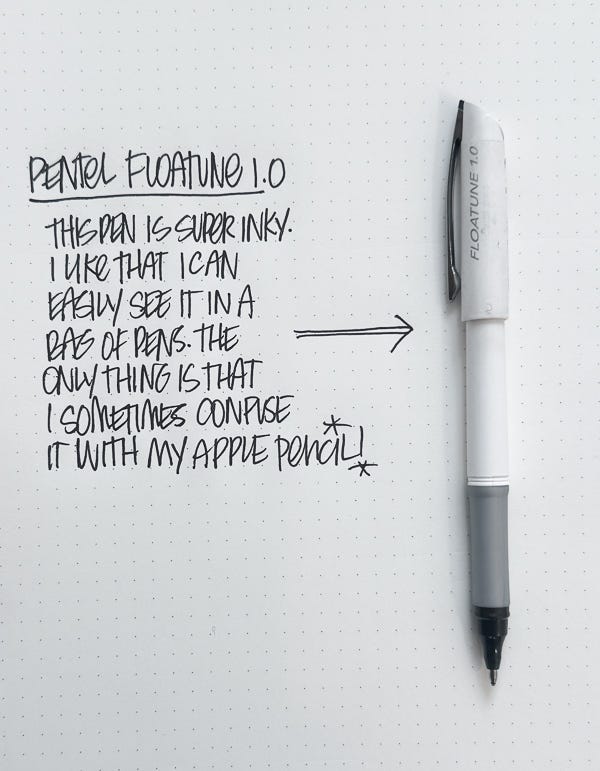 PENTEL FLOATUNE 1.0
THIS PEN IS SUPER INKY.
I LIKE THAT I CAN
EASILY SEE IT IN A
BAG OF PENS. THE
ONLY THING IS THAT
I SOMETIMES CONFUSE
IT WITH MY APPLE PENCIL!
FLOATUNE 1.0